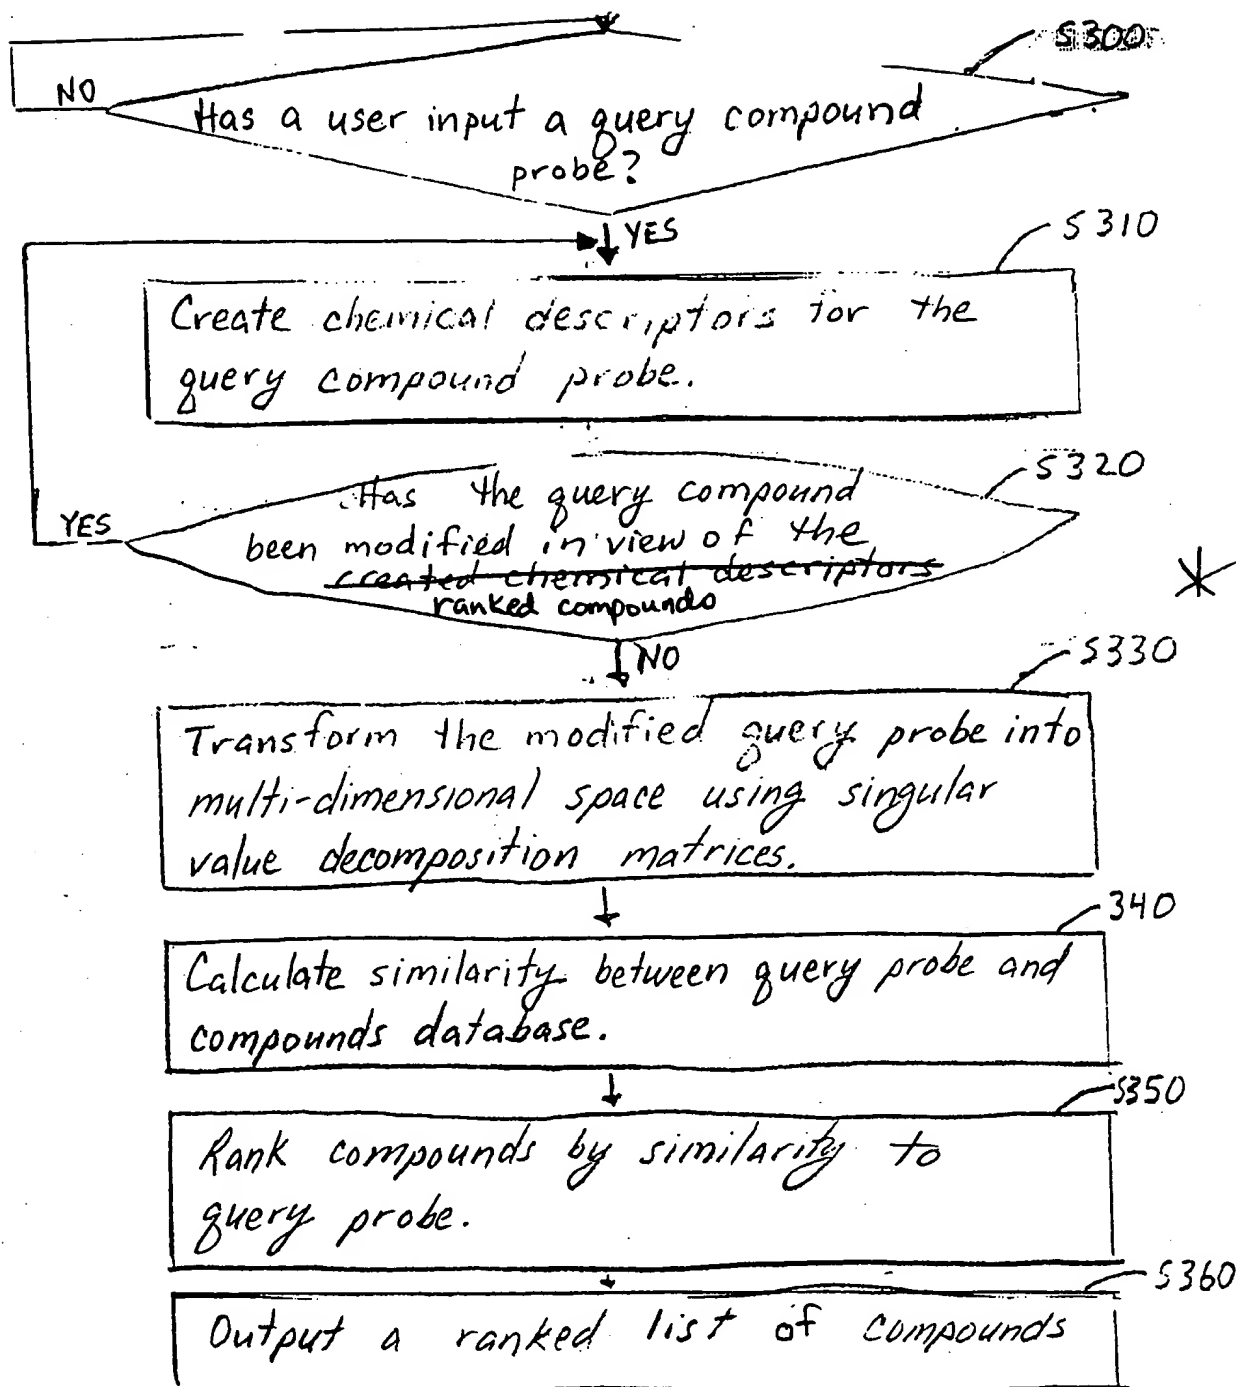 S300
NO
Has a user input a query compound
probe?
YES
S310
Create chemical descriptors for the
query compound probe.
S320
Has the query compound
YES
been modified in view of the
created chemical descriptors
ranked compounds
*
NO
S330
Transform the modified query probe into
multi-dimensional space using singular
value decomposition matrices.
340
Calculate similarity between query probe and
compounds database.
S350
Rank compounds by similarity to
query probe.
S360
Output a ranked list of compounds